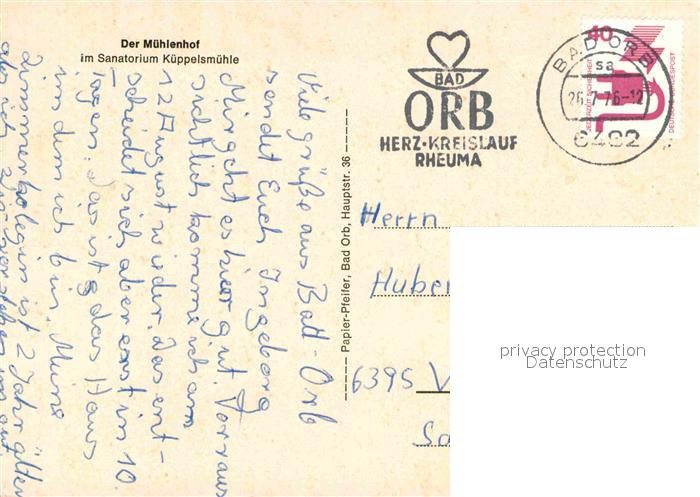 Der Mühlenhof
im Sanatorium Küppelsmühle
Viele grüße aus Batt-Orb
sendet Euch Ingeborg
Mir geht es hier gut. Vorraus
sichtlich komme ich am
12 August wieder. Das ent-
scheidet sich aber erst in 10
Tagen. das ist das Haus
in dem ich bin. Meine
Zimmerkolegin ist 2 Jahr älter
als ich
Papier-Pfeifer, Bad Orb, Hauptstr. 36
BAD
ORB
HERZ·KREISLAUF
RHEUMA
BAD ORB
sa
26. 76-12
6482
40
JEDERZEIT SICHERHEIT
DEUTSCHE BUNDESPOST
Herrn
Huber
6395
privacy protection
Datenschutz